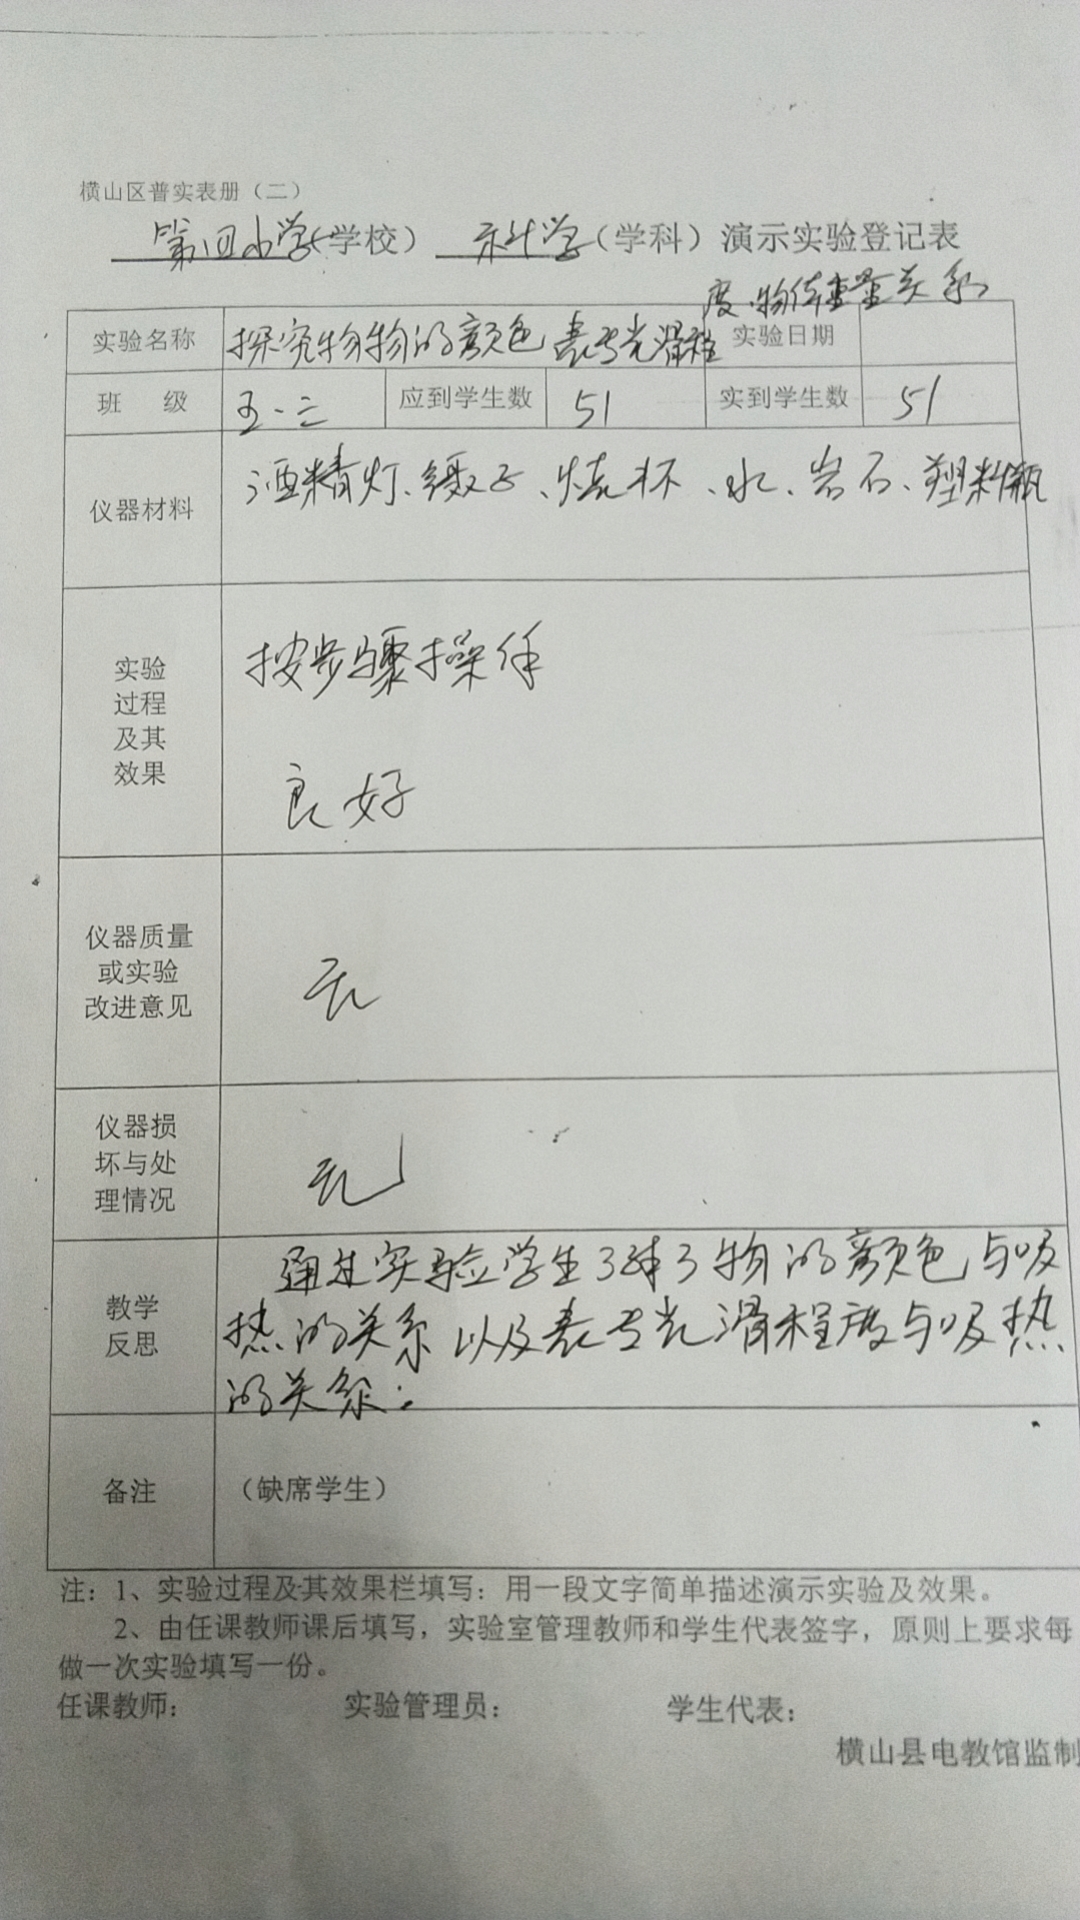 横山区普实表册（二）
第四小学（学校） 科学（学科）演示实验登记表
度.物体重量关系
实验名称 探究物物的颜色 表与光滑程 实验日期
班 级 五.二 应到学生数 51 实到学生数 51
仪器材料 酒精灯、镊子、烧杯、水、岩石、塑料瓶
实验
过程
及其
效果
按步骤操作
良好
仪器质量
或实验
改进意见
无
仪器损
坏与处
理情况
无
教学
反思
通过实验学生了解了物的颜色与吸
热的关系以及表与光滑程度与吸热
的关系；
备注 （缺席学生）
注：1、实验过程及其效果栏填写：用一段文字简单描述演示实验及效果。
2、由任课教师课后填写，实验室管理教师和学生代表签字，原则上要求每
做一次实验填写一份。
任课教师： 实验管理员： 学生代表：
横山县电教馆监制